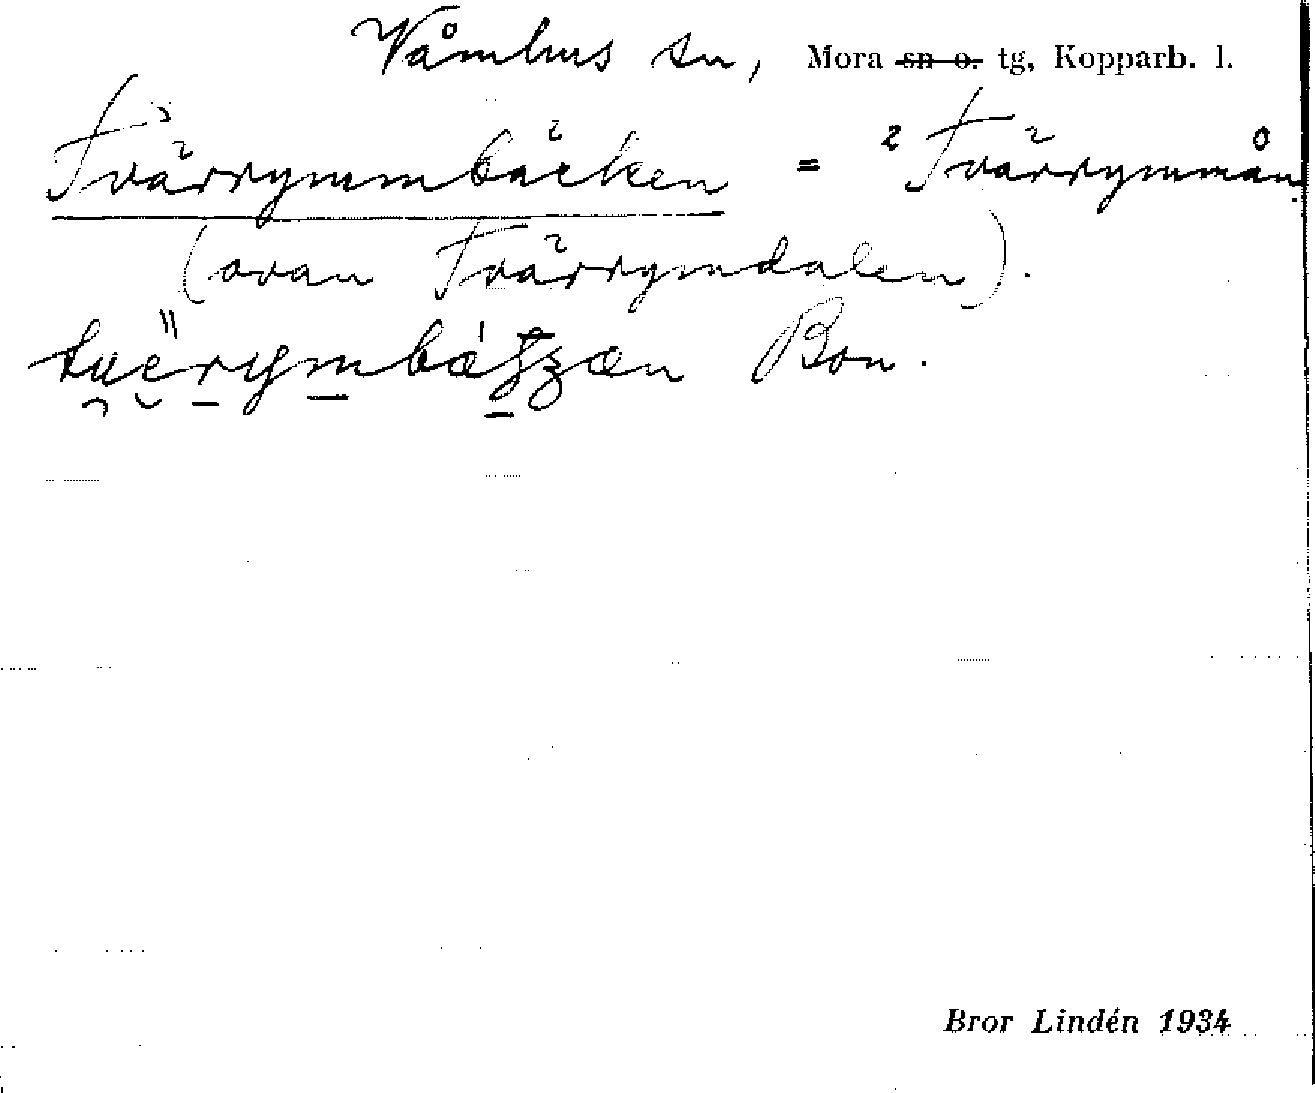 Våmhus sn, Mora sn o. tg, Kopparb. l.
Tvärrymmbäcken = ² Tvärrymmån
(ovan Tvärrymdalen).
Bon.
Bror Lindén 1934